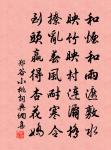 和煙和雨遮敷水
映竹映村連灞橋
撩亂春風耐寒令
到頭贏得杏花嬌
鄭谷小桃詩典網集